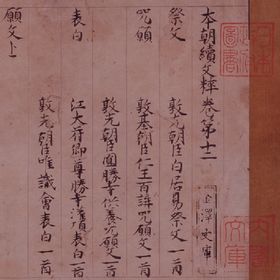 本朝續文粹卷第十二
祭文
敦光朝臣白居易祭文一首
呪願
敦基朝臣仁王百講呪願文一首
敦光朝臣圓勝寺供養呪願文一首
表白
江大府卿尊勝寺灌頂表白一首
敦光朝臣唯識會表白一首
願文上
金澤文庫